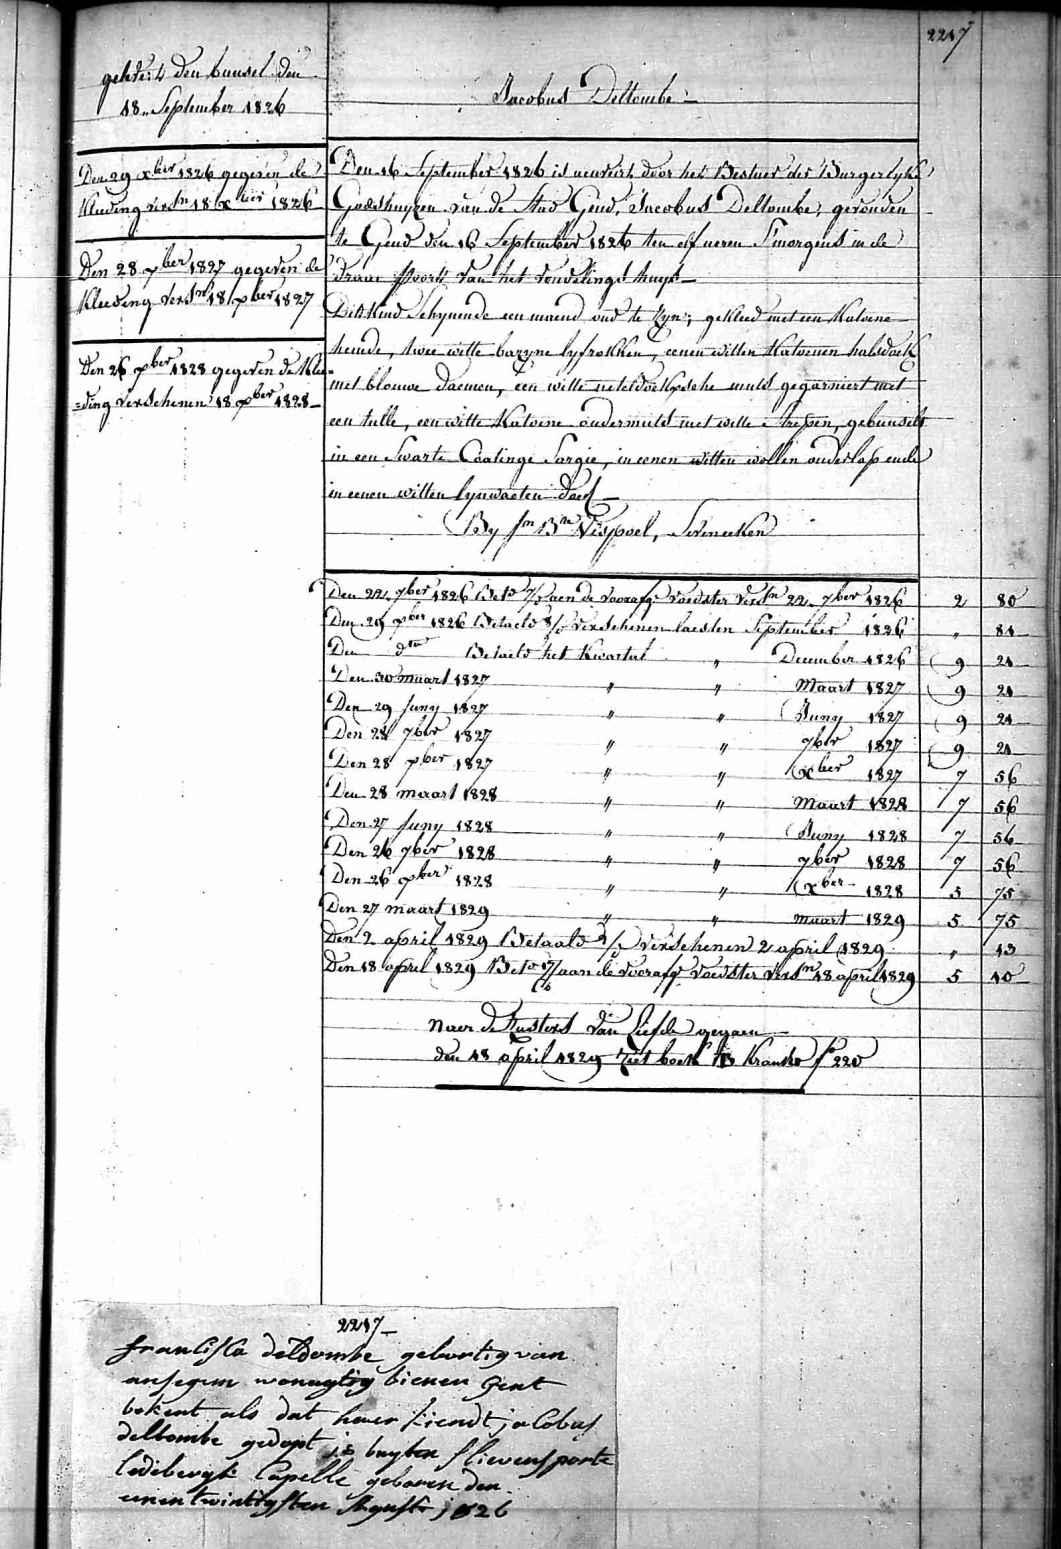 2217
geh[...] den bunsel den
18 September 1826
Jacobus Deltombe
Den 29 xber 1826 gegeven de
Kleeding versn 18 xber 1826
Den 28 xber 1827 gegeven de
Kleeding versn 18 xber 1827
Den 26 xber 1828 gegeven de Klee
=ding verschenen 18 xber 1828
Den 16 September 1826 is door het Bestuer der Burgerlyke
Godshuyzen van de Stad Gend, Jacobus Deltombe, gevonden
te Gend den 16 September 1826 ten elf ueren Smorgens in de
draai van het vondelings huys
Dit Kind Schynende een maend oud te zyn; gekleed met een Katoene
hemde, twee witte bazyne lyfrokken, eenen witten Katoenen halsdoek
met blouwe een witte neteldoeksche muts gegarniert met
een tulle, een witte Katoene ondermuts met witte strepen, gebunselt
in een Swarte Coatinge Sargie, in eenen witten wollen onderlap ende
in eenen witten lynwaeten doek
By Vispoel, Serneeken
Den 22 7ber 1826 Bets aen de voorafge voedster versn 22 7ber 1826 2 80
Den 29 xber 1826 Betaeld verschenen laesten September 1826 " 81
Den dto Betaeld het Kwartal " December 1826 9 21
Den 30 maart 1827 " " Maart 1827 9 21
Den 29 Juny 1827 " " Juny 1827 9 21
Den 28 7ber 1827 " " 7ber 1827 9 21
Den 28 xber 1827 " " xber 1827 7 56
Den 28 maart 1828 " " Maart 1828 7 56
Den 27 Juny 1828 " " Juny 1828 7 56
Den 26 7ber 1828 " " 7ber 1828 7 56
Den 26 xber 1828 " " xber 1828 5 75
Den 27 maart 1829 " " maart 1829 5 75
Den 2 april 1829 Betaald verschenen 2 april 1829 " 13
Den 18 april 1829 Bets aan de voorafge voedster versn 18 april 1829 5 10
naer de Zusters van Liefde gegaen
den 18 april 1829 Ziet boek Kranke fo 220
2217
franciska deltombe gebortig van
ansegem wonagtig binen Gent
bekent als dat haer kiendt jacobus
deltombe gedopt is buyten slievensporte
ledebergk Capelle geboren den
eenentwintigsten Agusti 1826